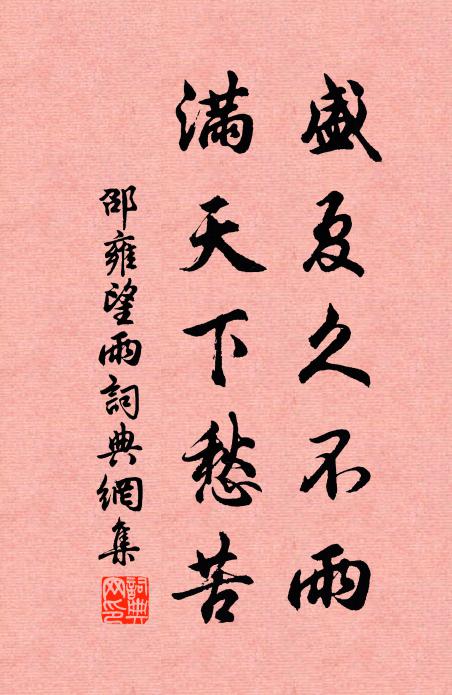 盛夏久不雨
滿天下愁苦
邵雍望雨詞典網集
詞典網印